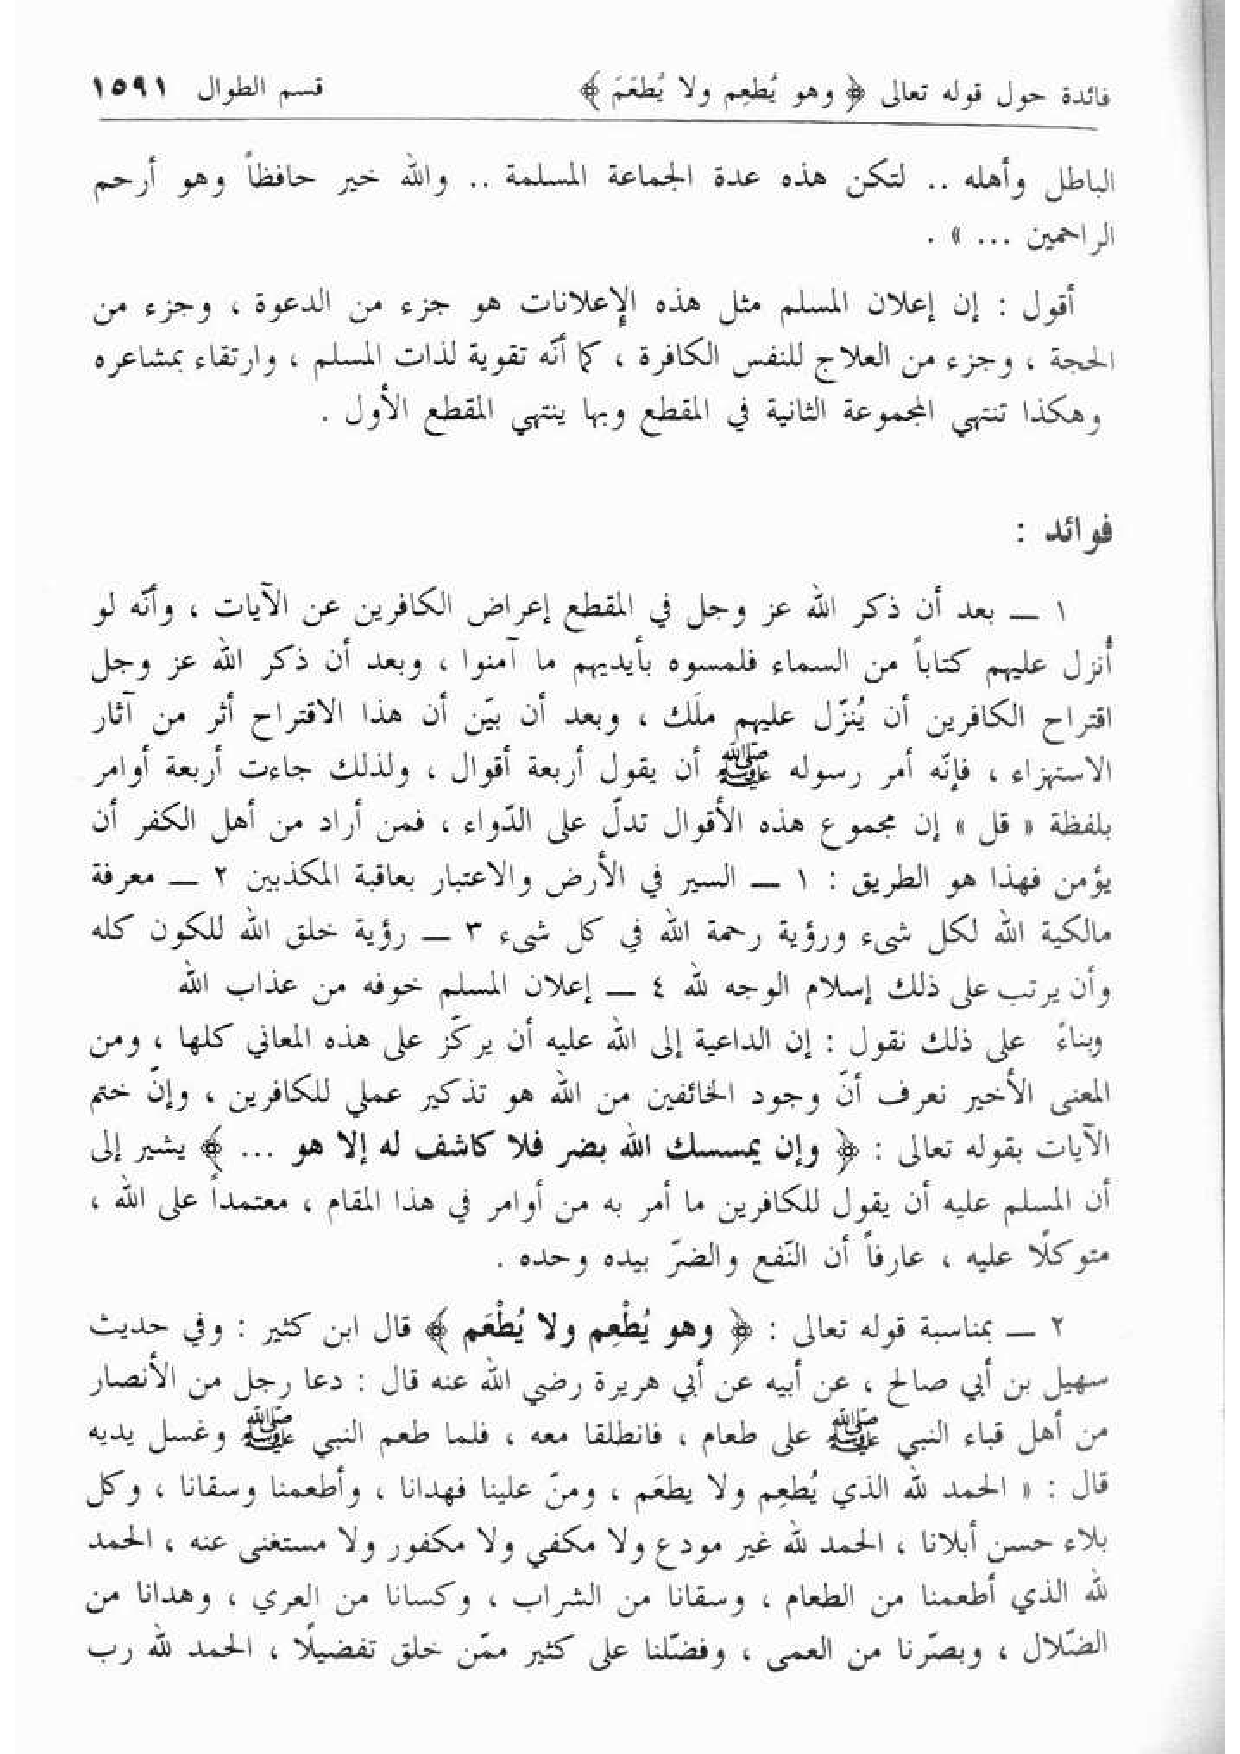 فائدة حول قوله تعالى ﴿ وهو يُطعِم ولا يُطعَمَ ﴾ قسم الطوال ١٥٩١
الباطل وأهله .. لتكن هذه عدة الجماعة المسلمة .. والله خير حافظاً وهو أرحم
الراحمين ... » .
أقول : إن إعلان المسلم مثل هذه الإعلانات هو جزء من الدعوة ، وجزء من
الحجة ، وجزء من العلاج للنفس الكافرة ، كما أنّه تقوية لذات المسلم ، وارتقاء بمشاعره
وهكذا تنتهي المجموعة الثانية في المقطع وبها ينتهي المقطع الأول .
فوائد :
١ ــ بعد أن ذكر الله عز وجل في المقطع إعراض الكافرين عن الآيات ، وأنّه لو
أُنزل عليهم كتاباً من السماء فلمسوه بأيديهم ما آمنوا ، وبعد أن ذكر الله عز وجل
اقتراح الكافرين أن يُنزّل عليهم ملَك ، وبعد أن بيّن أن هذا الاقتراح أثر من آثار
الاستهزاء ، فإنّه أمر رسوله ﷺ أن يقول أربعة أقوال ، ولذلك جاءت أربعة أوامر
بلفظة « قل » إن مجموع هذه الأقوال تدلّ على الدّواء ، فمن أراد من أهل الكفر أن
يؤمن فهذا هو الطريق : ١ ــ السير في الأرض والاعتبار بعاقبة المكذبين ٢ ــ معرفة
مالكية الله لكل شىء ورؤية رحمة الله في كل شىء ٣ ــ رؤية خلق الله للكون كله
وأن يرتب على ذلك إسلام الوجه لله ٤ ــ إعلان المسلم خوفه من عذاب الله
وبناءً على ذلك نقول : إن الداعية إلى الله عليه أن يركّز على هذه المعاني كلها ، ومن
المعنى الأخير نعرف أنّ وجود الخائفين من الله هو تذكير عملي للكافرين ، وإنّ ختم
الآيات بقوله تعالى : ﴿ وإن يمسسك الله بضر فلا كاشف له إلا هو ... ﴾ يشير إلى
أن المسلم عليه أن يقول للكافرين ما أمر به من أوامر في هذا المقام ، معتمداً على الله ،
متوكلًا عليه ، عارفاً أن النّفع والضرّ بيده وحده .
٢ ــ بمناسبة قوله تعالى : ﴿ وهو يُطْعِم ولا يُطْعَم ﴾ قال ابن كثير : وفي حديث
سهيل بن أبي صالح ، عن أبيه عن أبي هريرة رضي الله عنه قال : دعا رجل من الأنصار
من أهل قباء النبي ﷺ على طعام ، فانطلقا معه ، فلما طعم النبي ﷺ وغسل يديه
قال : « الحمد لله الذي يُطعِم ولا يطعَم ، ومنّ علينا فهدانا ، وأطعمنا وسقانا ، وكل
بلاء حسن أبلانا ، الحمد لله غير مودع ولا مكفي ولا مكفور ولا مستغنى عنه ، الحمد
لله الذي أطعمنا من الطعام ، وسقانا من الشراب ، وكسانا من العري ، وهدانا من
الضّلال ، وبصّرنا من العمى ، وفضّلنا على كثير ممّن خلق تفضيلًا ، الحمد لله رب